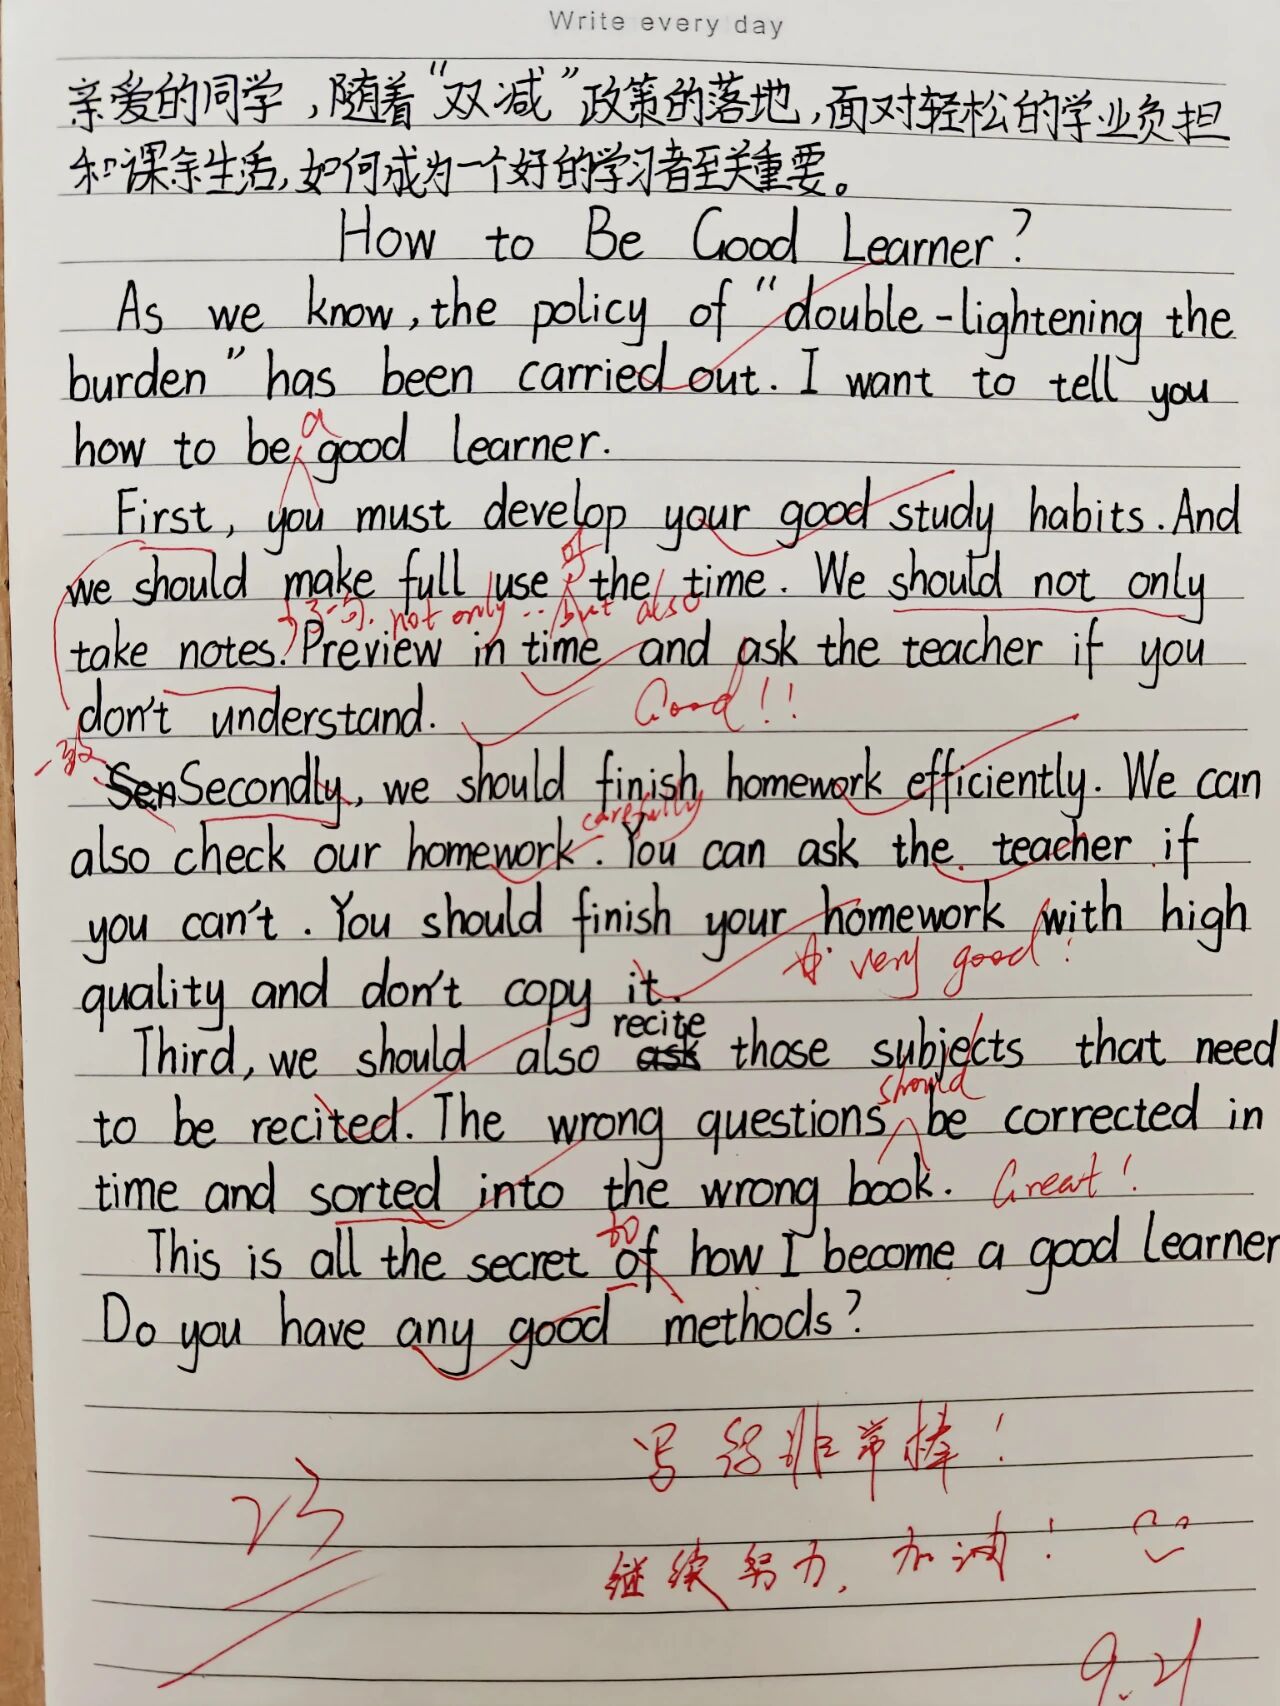 Write every day
亲爱的同学，随着“双减”政策的落地，面对轻松的学业负担
和课余生活，如何成为一个好的学习者至关重要。
How to Be Good Learner?
As we know, the policy of “double-lightening the
burden” has been carried out. I want to tell you
a
how to be good learner.
First, you must develop your good study habits. And
of
we should make full use the time. We should not only
not only ... but also
take notes. Preview in time and ask the teacher if you
don't understand.
Good!!
一致
Secondly, we should finish homework efficiently. We can
carefully
also check our homework. You can ask the teacher if
you can't. You should finish your homework with high
very good!
quality and don't copy it.
recite
Third, we should also ask those subjects that need
should
to be recited. The wrong questions be corrected in
time and sorted into the wrong book. Great!
to
This is all the secret of how I become a good learner
Do you have any good methods?
写得非常棒！
23
继续努力，加油！
9.21